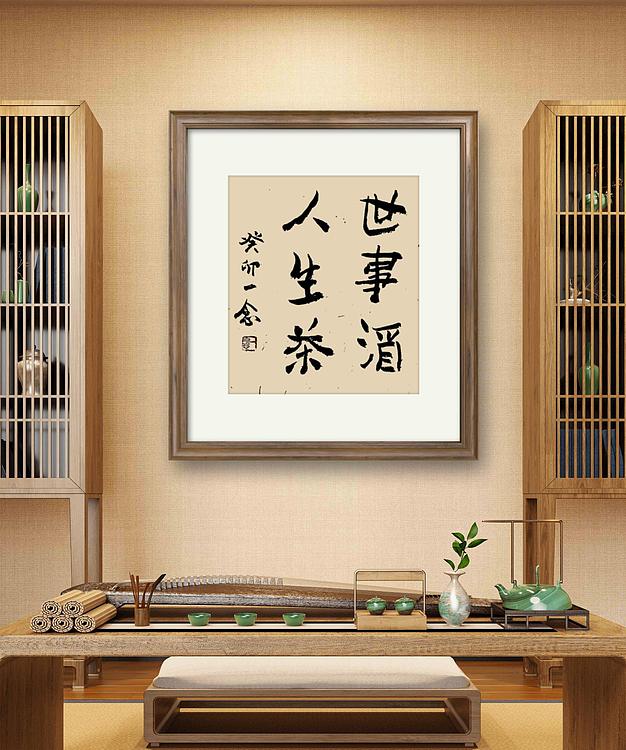 世事酒
人生茶
癸卯一念